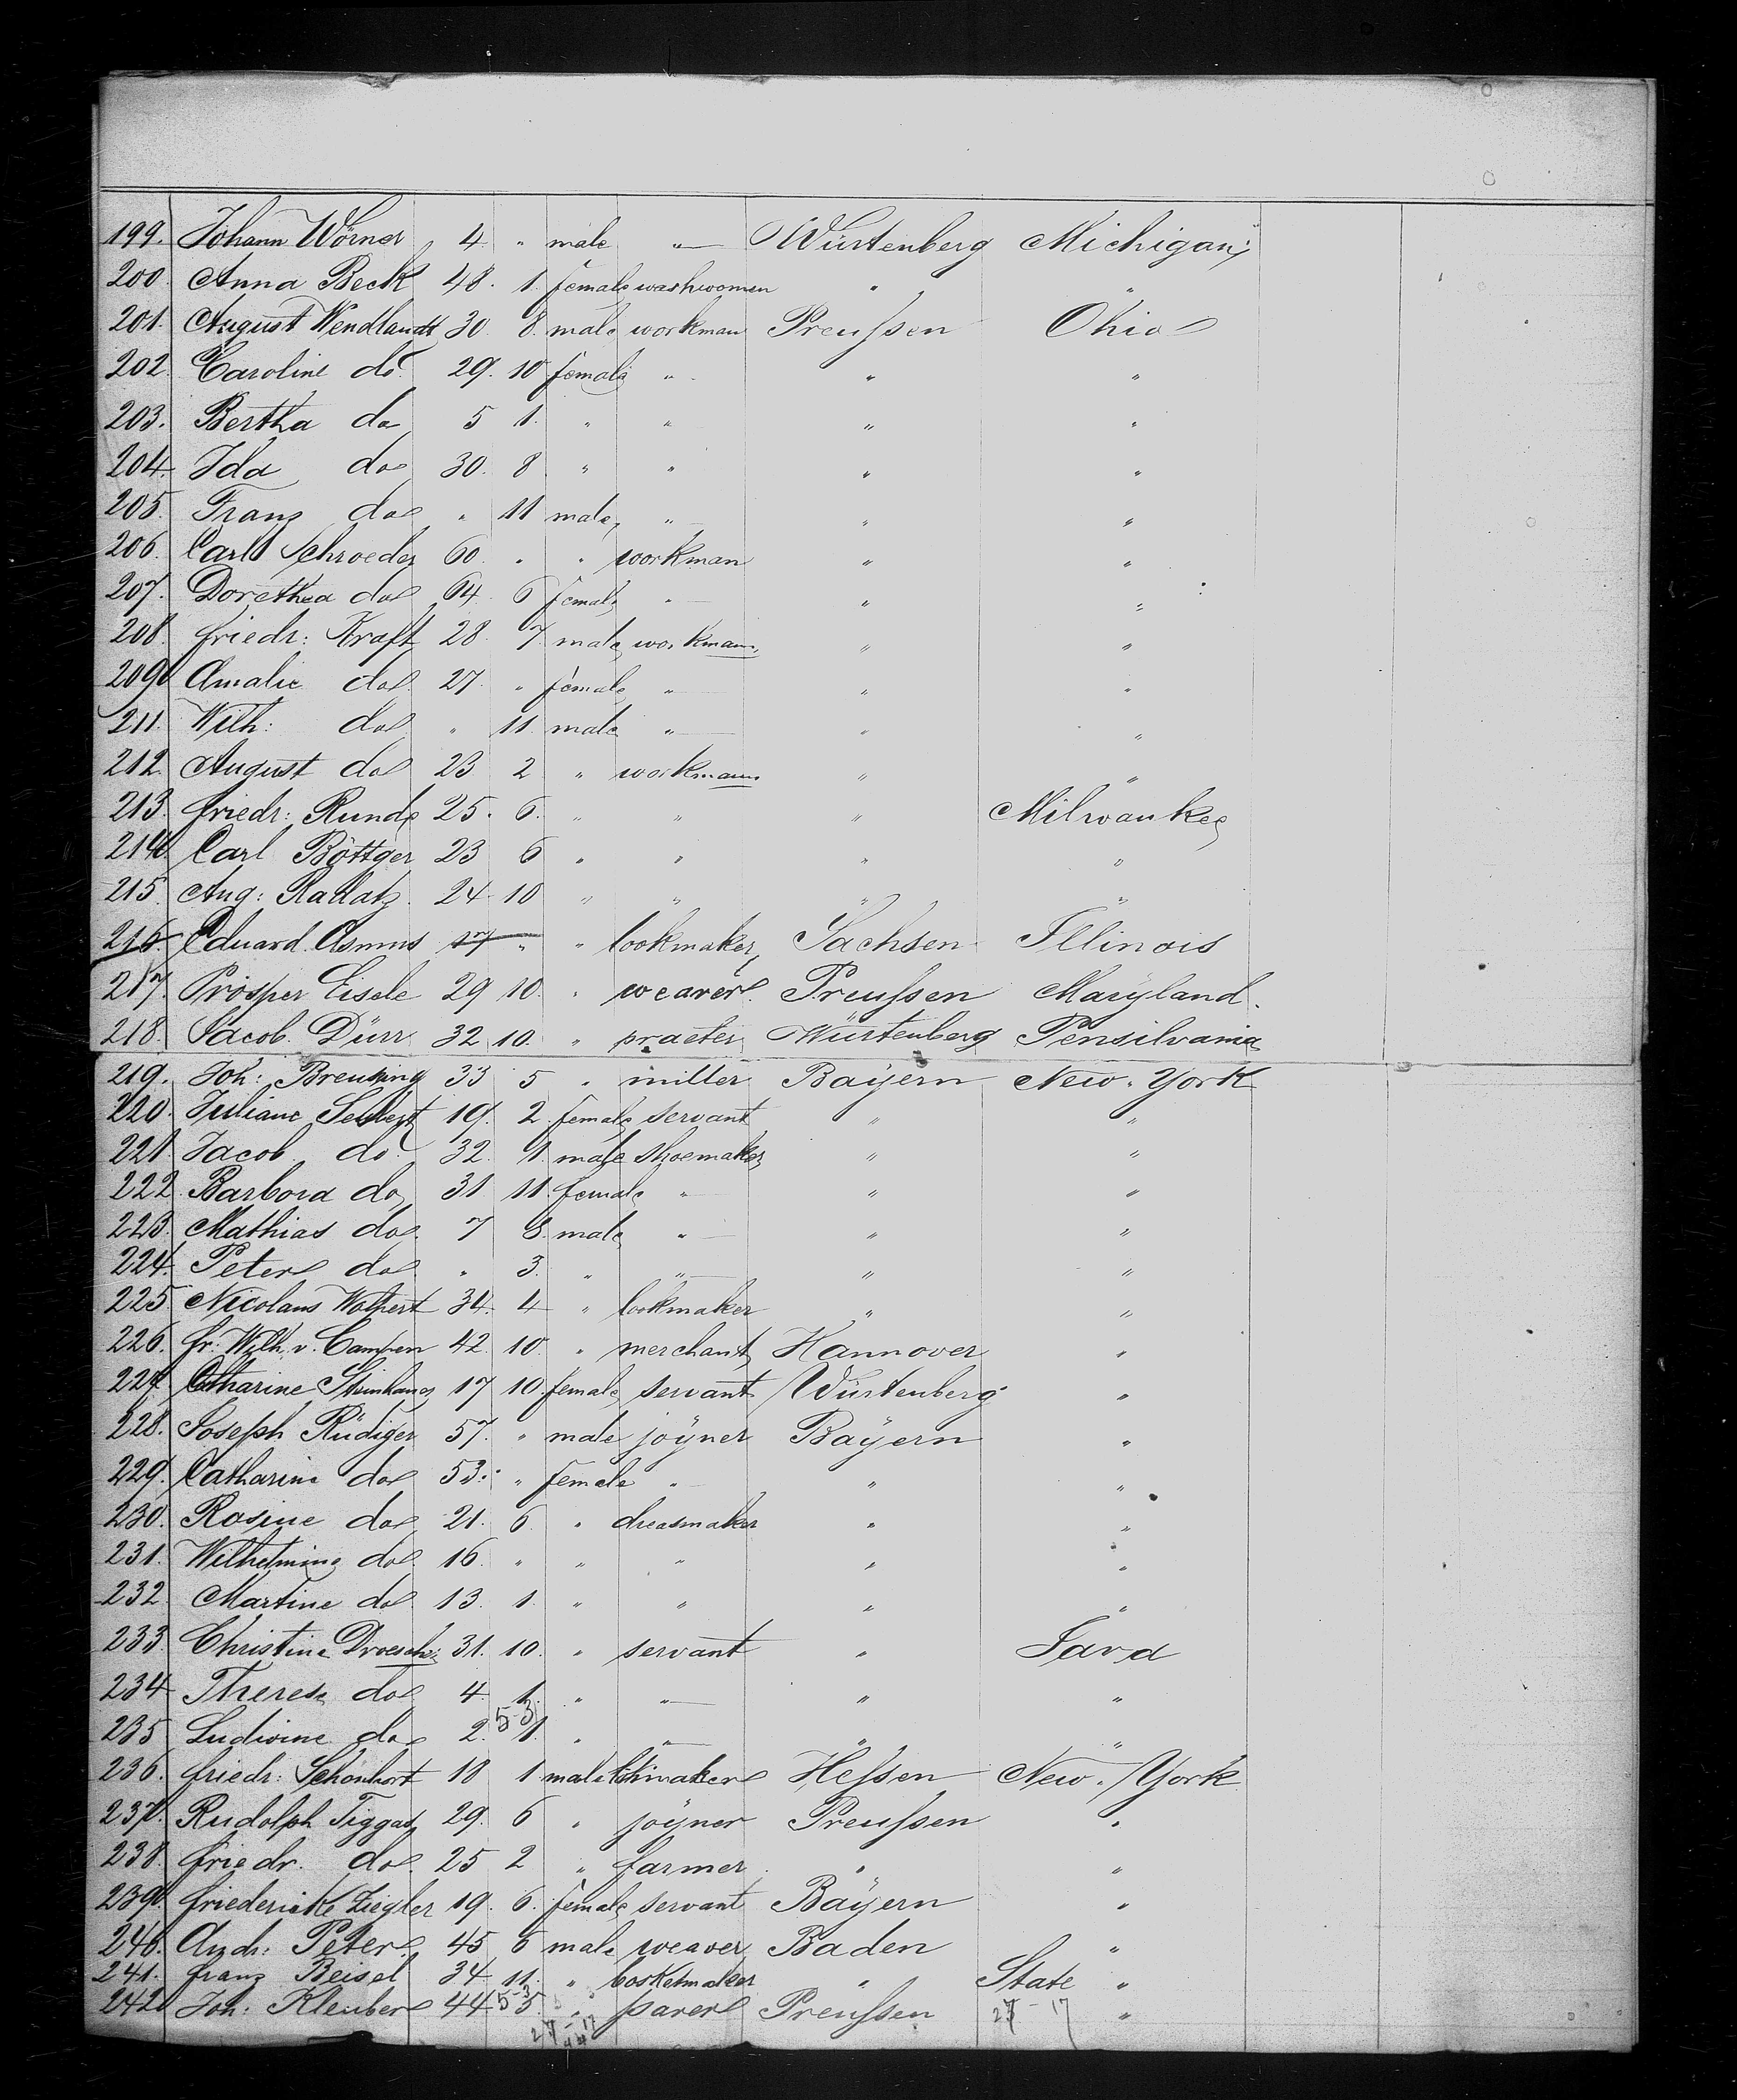 199. Johann Wörner 4 " male " Würtenberg Michigan
200. Anna Beck 48. 1. female washwomen " "
201. August Wendlandt 30. 8. male workman Preußen Ohio
202. Caroline do 29. 10 female " " "
203. Bertha do 5 1. " " " "
204. Ida do 30. 8 " " " "
205. Franz do " 11 male " " "
206. Carl Schroeder 60 " " workman " "
207. Dorethea do 64. 6 female " " "
208. friedr: Kraft 28. 7. male workman " "
209 Amalie do 27. " female " " "
211. Wilh: do " 11. male " " "
212. August do 23 2 " workman " "
213. friedr: Runde 25. 6. " " " Milwaukee
214. Carl Böttger 23 6 " " " "
215. Aug: Radatz 24 10 " " " "
216. Eduard Asmus 17 " " lookmaker Sachsen Illinois
217. Prosper Eisele 29 10. " weaver Preußen Maryland.
218. Jacob Dürr 32 10. " Würtenberg Pensilvania
219. Joh: 33 5 " miller Bayern New-York
220. Juliane 19. 2. female servant " "
221. Jacob do 32. 1. male shoemaker " "
222. Barbora do 31 11. female " " "
223. Mathias do 7 8. male " " "
224. Peter do " 3. " " " "
225. Nicolaus Wolpert 34. 4 " lookmaker " "
226. fr: Wilh. v. Campen 42. 10. " merchant Hannover "
227. Catharine 17 10. female servant Würtenberg "
228. Joseph Rüdiger 57. " male joyner Bayern "
229. Catharine do 53. " female " " "
230. Rosine do 21. 6 " dreasmaker " "
231. Wilhelmine do 16. " " " " "
232 Martine do 13. 1. " " " "
233 Christine Droesch: 31. 10. " servant "
234 Therese do 4. 1. " " " "
5-3
235 Ludwine do 2. 1. " " " "
236. friedr: Schönhort 18 1 male Heßen New-York
237. Rudolph Tigges 29. 6 " joyner Preußen "
238. friedr. do 25 2 " farmer " "
239. friedericke Ziegler 19. 6. female servant Bayern "
240. Andr: Peter 45 6 male weaver Baden "
241. franz Beisel 34 11. " bosketmaker " State "
5-3
242 Joh: Kleuber 44 5. " parer Preußen 27-17 "
27-17
44